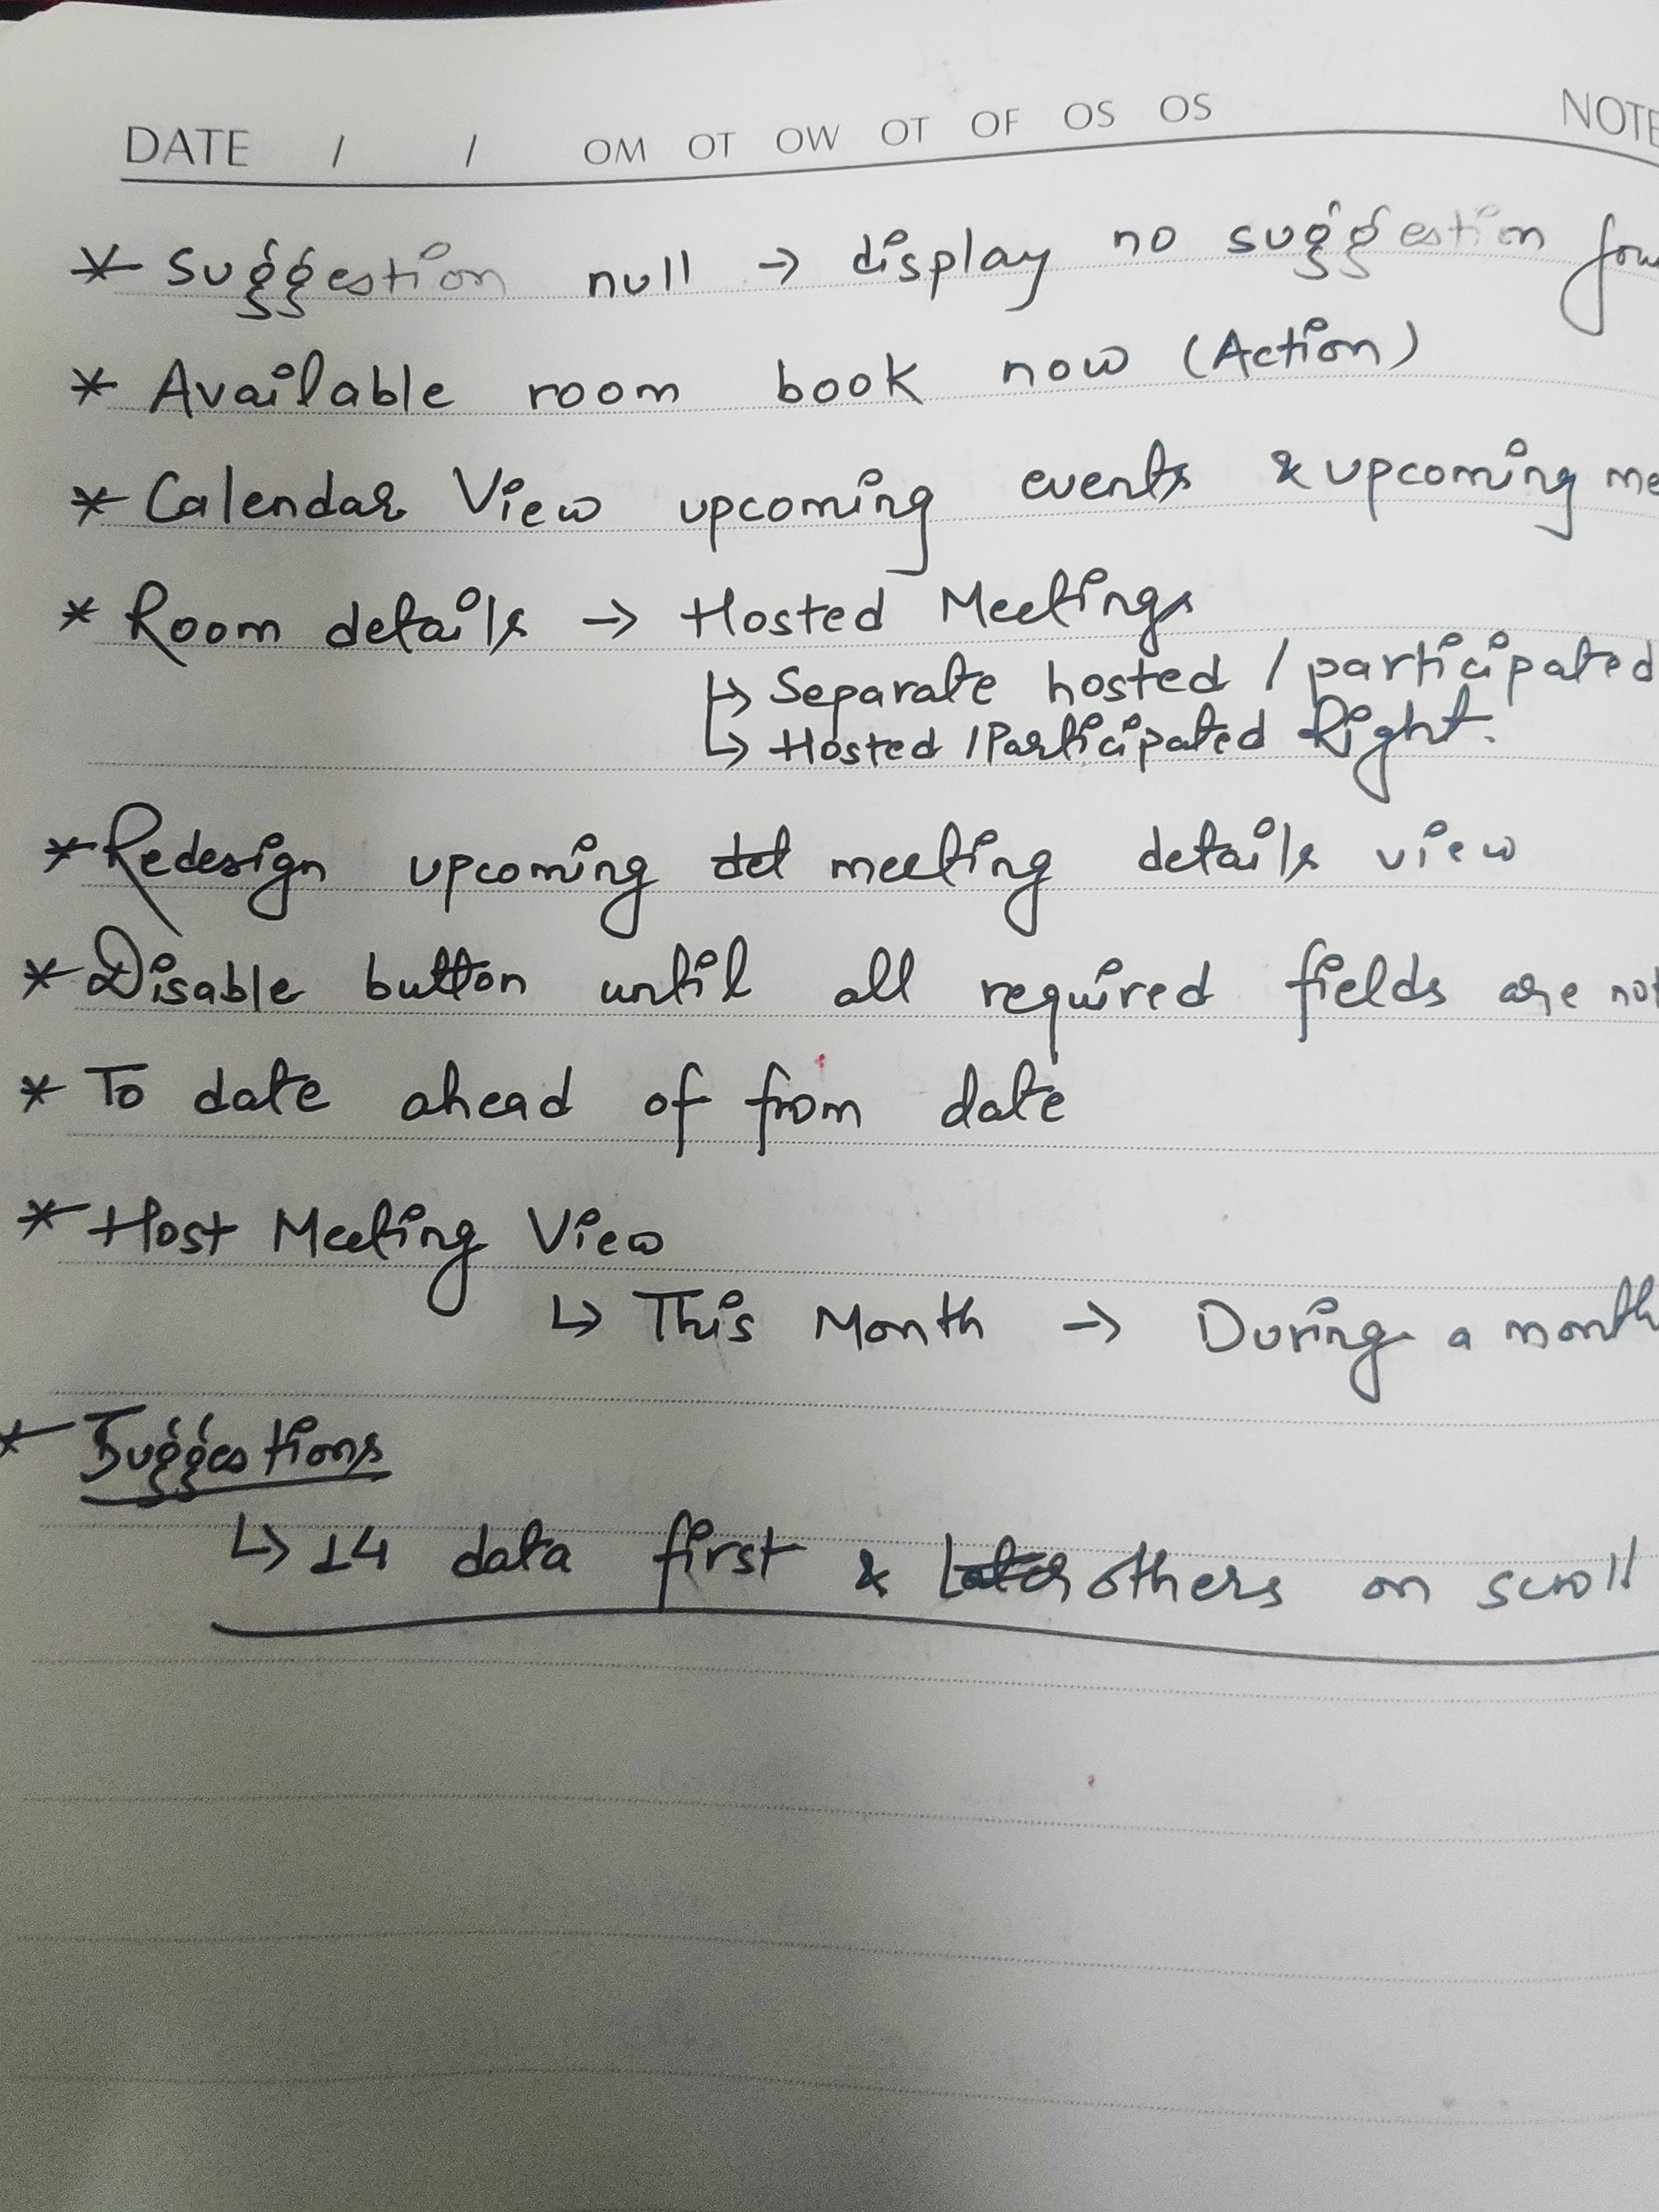 DATE / / OM OT OW OT OF OS OS NOTE
* Suggestion null → display no suggestion
* Available room book now (Action)
* Calendar View upcoming events & upcoming
* Room details → Hosted Meetings
↳ Separate hosted / participated
↳ Hosted / Participated Right.
* Redesign upcoming meeting details view
* Disable button until all required fields are not
* To date ahead of from date
* Host Meeting View
↳ This Month → During a month
* Suggestions
↳ 14 data first & others on scroll